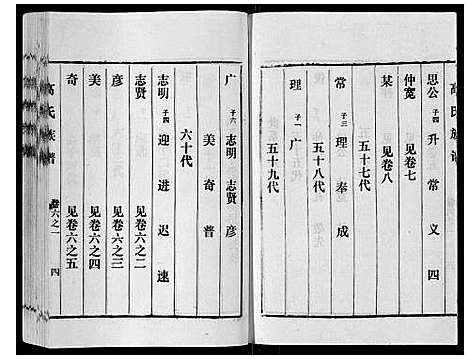 高氏族谱
思公 子四 升 常 义 四
仲宽 见卷七
某 见卷八
五十七代
常 子三 理 奉 成
五十八代
理 子一 广
五十九代
广 子六 志明 志贤 彦
美 奇 普
六十代
志明 子四 迎 进 迟 速
志贤 见卷六之二
彦 见卷六之三
美 见卷六之四
奇 见卷六之五
高氏族谱 卷六之一 四